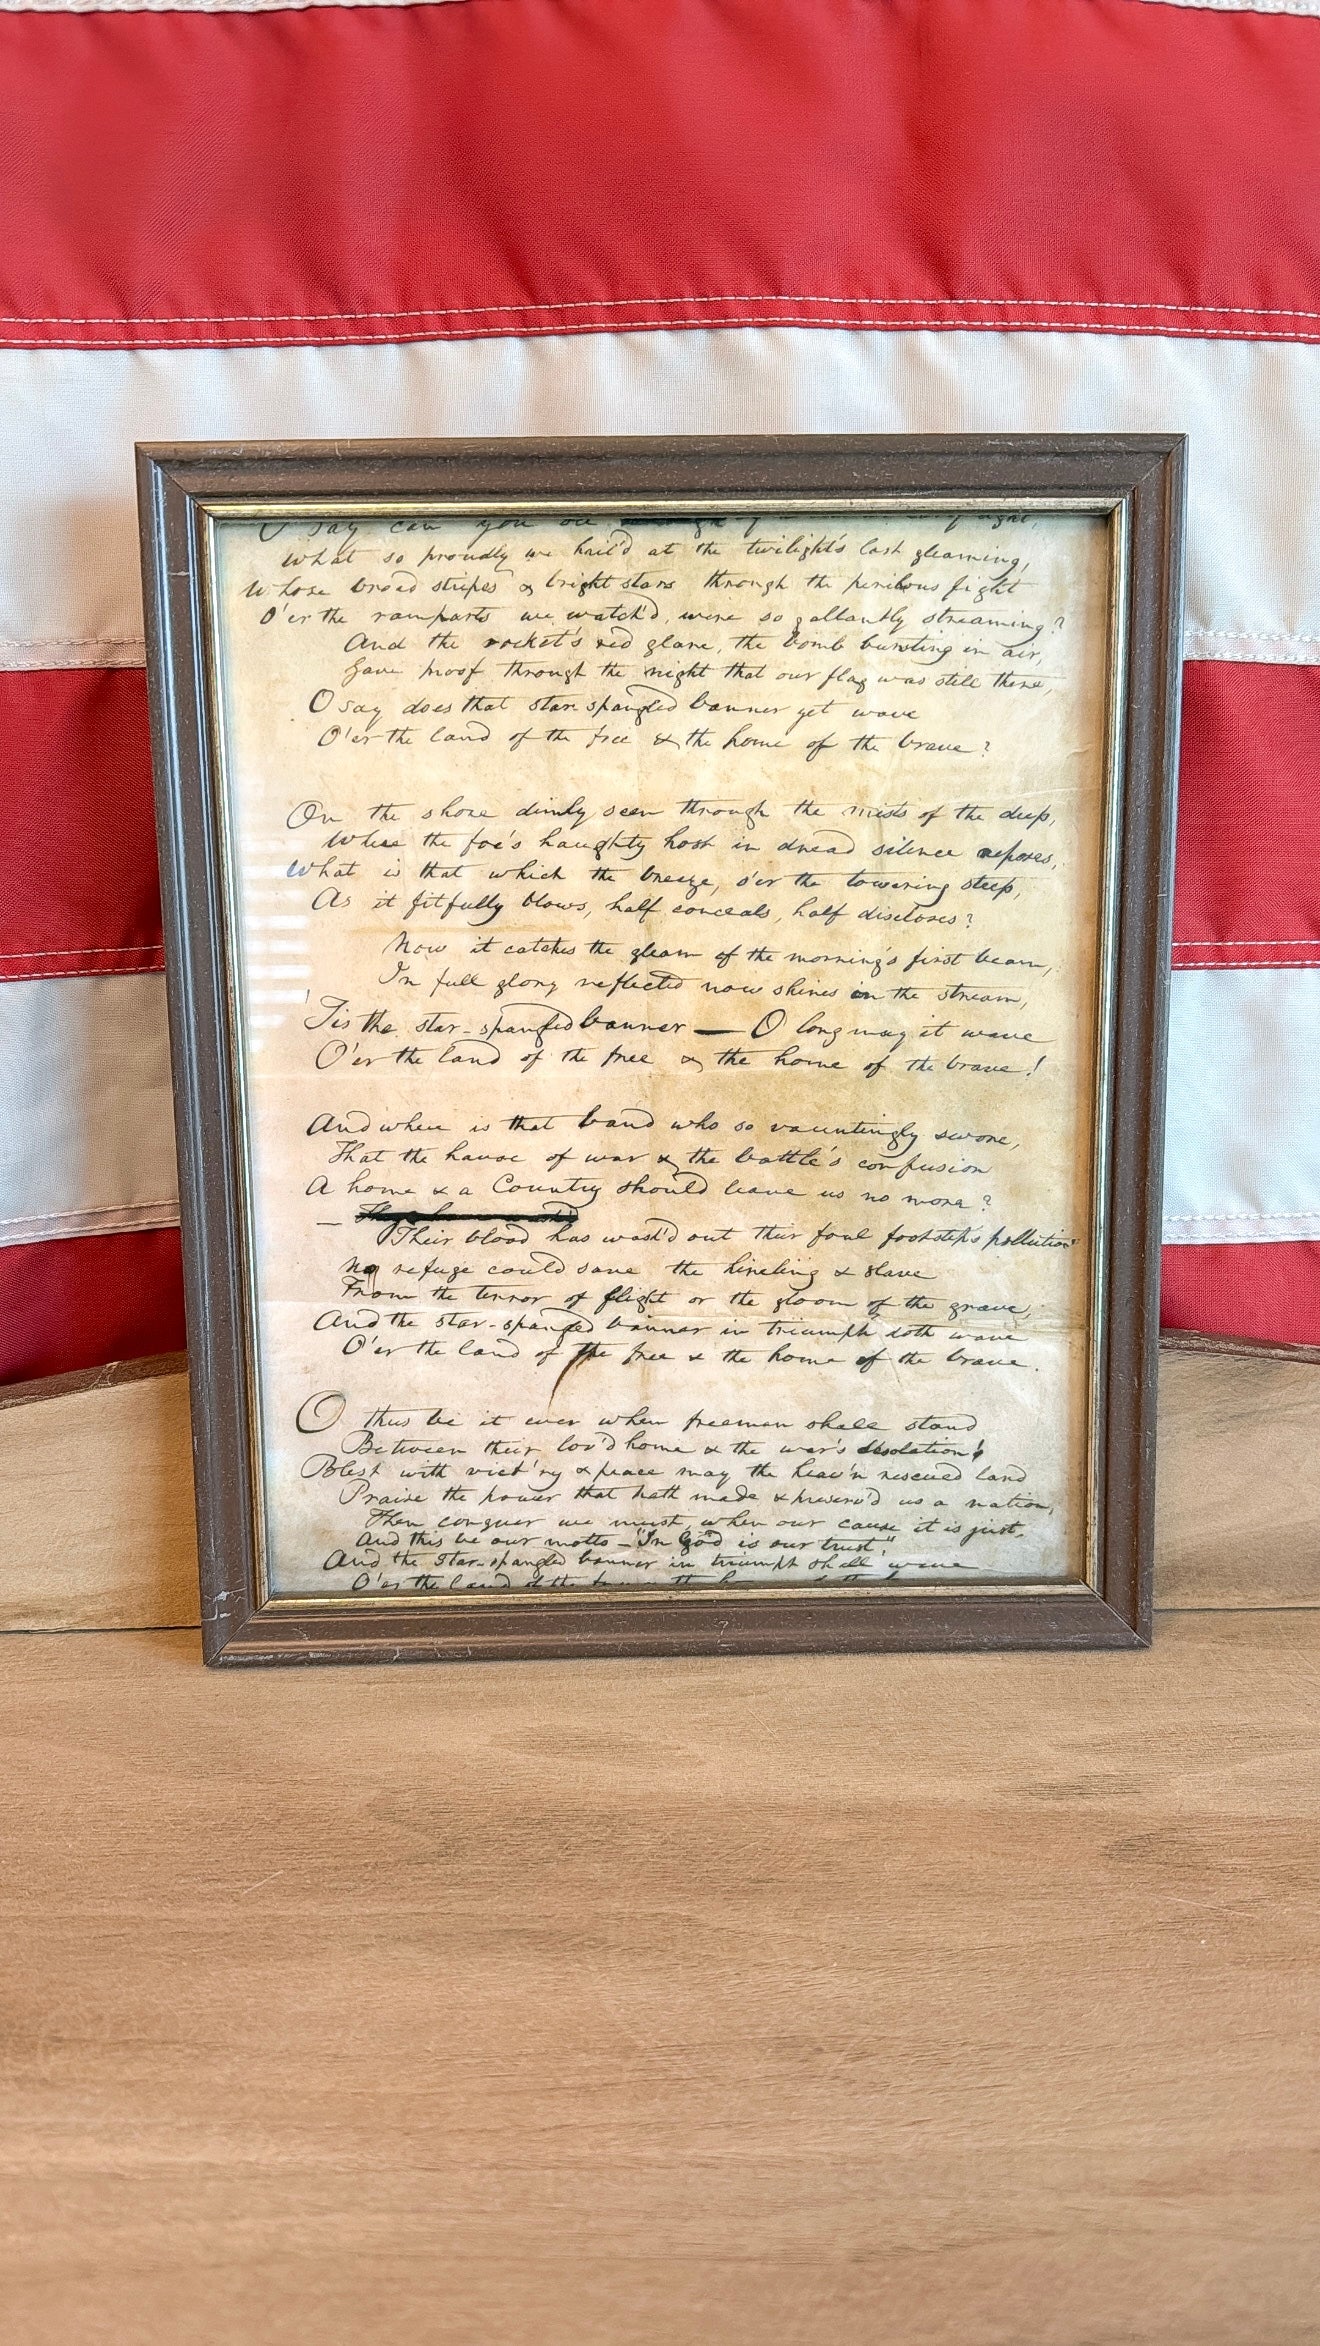 O say can you see
What so proudly we hail'd at the twilight's last gleaming,
Whose broad stripes & bright stars through the perilous fight
O'er the ramparts we watch'd, were so gallantly streaming?
And the rocket's red glare, the bomb bursting in air,
Gave proof through the night that our flag was still there,
O say does that star-spangled banner yet wave
O'er the land of the free & the home of the brave?
On the shore dimly seen through the mists of the deep,
Where the foe's haughty host in dread silence reposes,
What is that which the breeze, o'er the towering steep,
As it fitfully blows, half conceals, half discloses?
Now it catches the gleam of the morning's first beam,
In full glory reflected now shines in the stream,
'Tis the star-spangled banner — O long may it wave
O'er the land of the free & the home of the brave!
And where is that band who so vauntingly swore,
That the havoc of war & the battle's confusion
A home & a Country should leave us no more?
Their blood has wash'd out their foul footstep's pollution
No refuge could save the hireling & slave
From the terror of flight or the gloom of the grave,
And the star-spangled banner in triumph doth wave
O'er the land of the free & the home of the brave.
O thus be it ever when freemen shall stand
Between their lov'd home & the war's desolation!
Blest with vict'ry & peace may the heav'n rescued land
Praise the power that hath made & preserv'd us a nation,
Then conquer we must, when our cause it is just,
And this be our motto — "In God is our trust,"
And the star-spangled banner in triumph shall wave
O'er the land of the